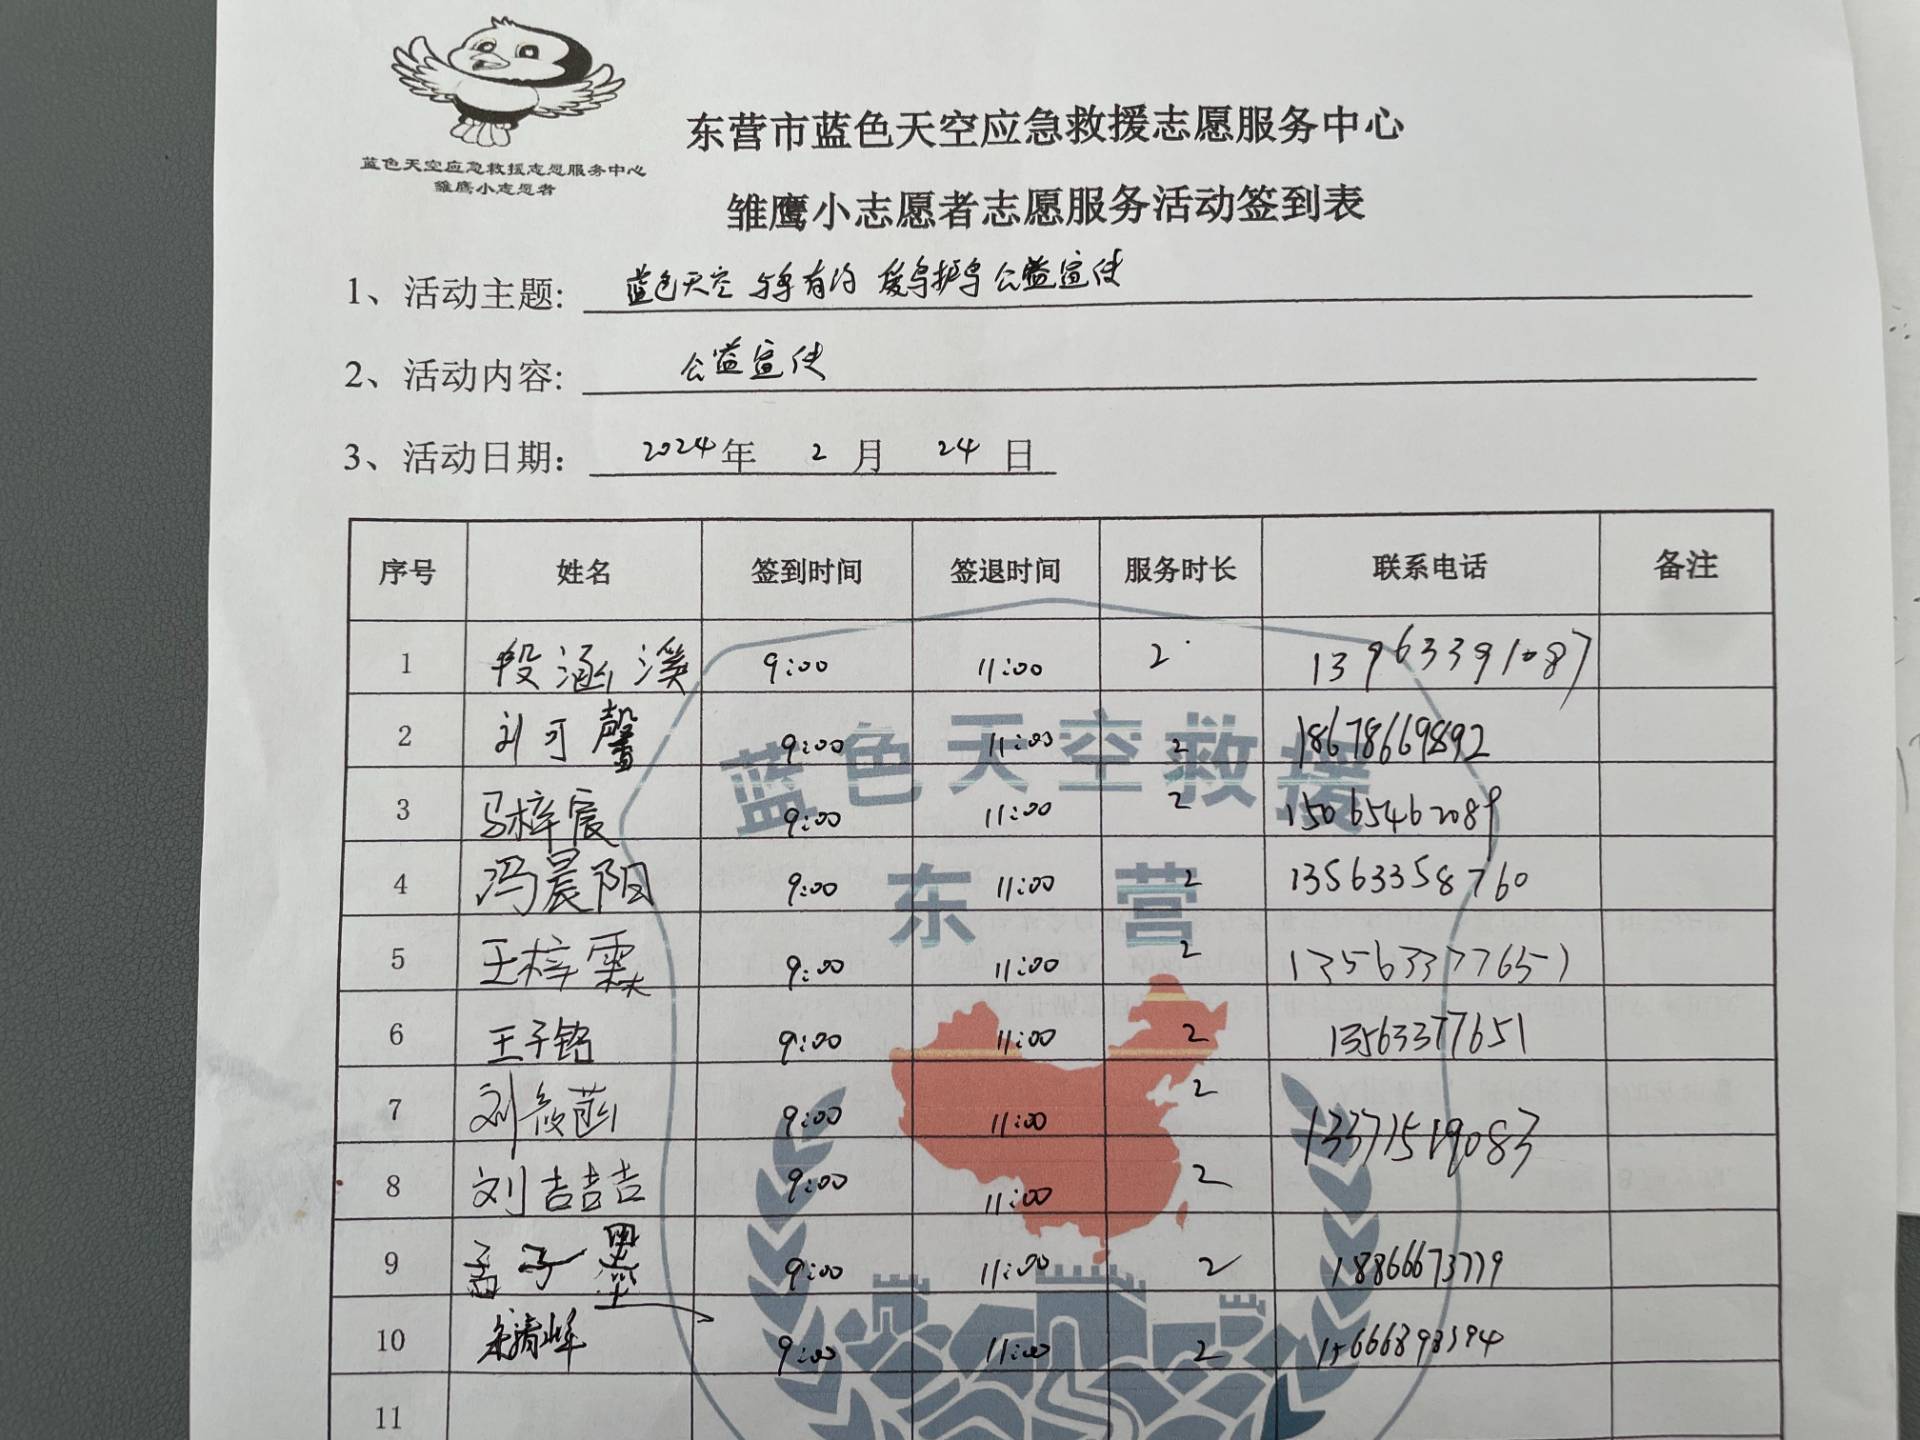 蓝色天空应急救援志愿服务中心
雏鹰小志愿者
东营市蓝色天空应急救援志愿服务中心
雏鹰小志愿者志愿服务活动签到表
1、活动主题: 蓝色天空 与争有约 爱鸟护鸟 公益宣传
2、活动内容: 公益宣传
3、活动日期: 2024年 2 月 24 日
序号 姓名 签到时间 签退时间 服务时长 联系电话 备注
1 段涵溪 9:00 11:00 2 13963391087
2 刘可馨 9:00 11:00 2 18678669892
3 马梓宸 9:00 11:00 2 15065462089
4 冯晨阳 9:00 11:00 2 13563358760
5 王梓霖 9:00 11:00 2 13563377651
6 王子铭 9:00 11:00 2 13563377651
7 刘筱菡 9:00 11:00 2 13371519083
8 刘吉喆 9:00 11:00 2
9 孟子墨 9:00 11:00 2 18866673779
10 9:00 11:00 2
11
蓝色天空救援
东营